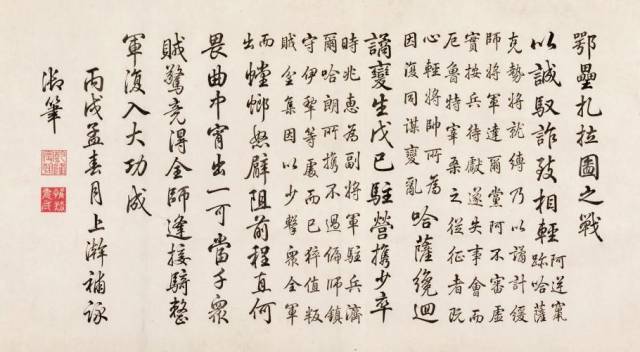 鄂壘扎拉圖之戰
以誠馭詐致相輕
阿逆竄
跡哈薩
克勢將就縛乃以譎計緩
師將軍達爾黨阿不審虛
實按兵待獻遂失事會而
厄魯特宰桑之從征者既
心輕將帥所為
因復同謀變亂
哈薩纔迴
譎變生戊已駐營攜少卒
時兆惠為副將軍駐兵濟
爾哈朗所攜不過偏師鎮
守伊犂等處而已猝值叛
賊全集因以少擊眾全軍
而
出
螳螂怒臂阻前程直何
畏曲中宵出一可當千眾
賊驚竟得全師逢接騎整
軍復入大功成
丙戌孟春月上澣補詠
御筆